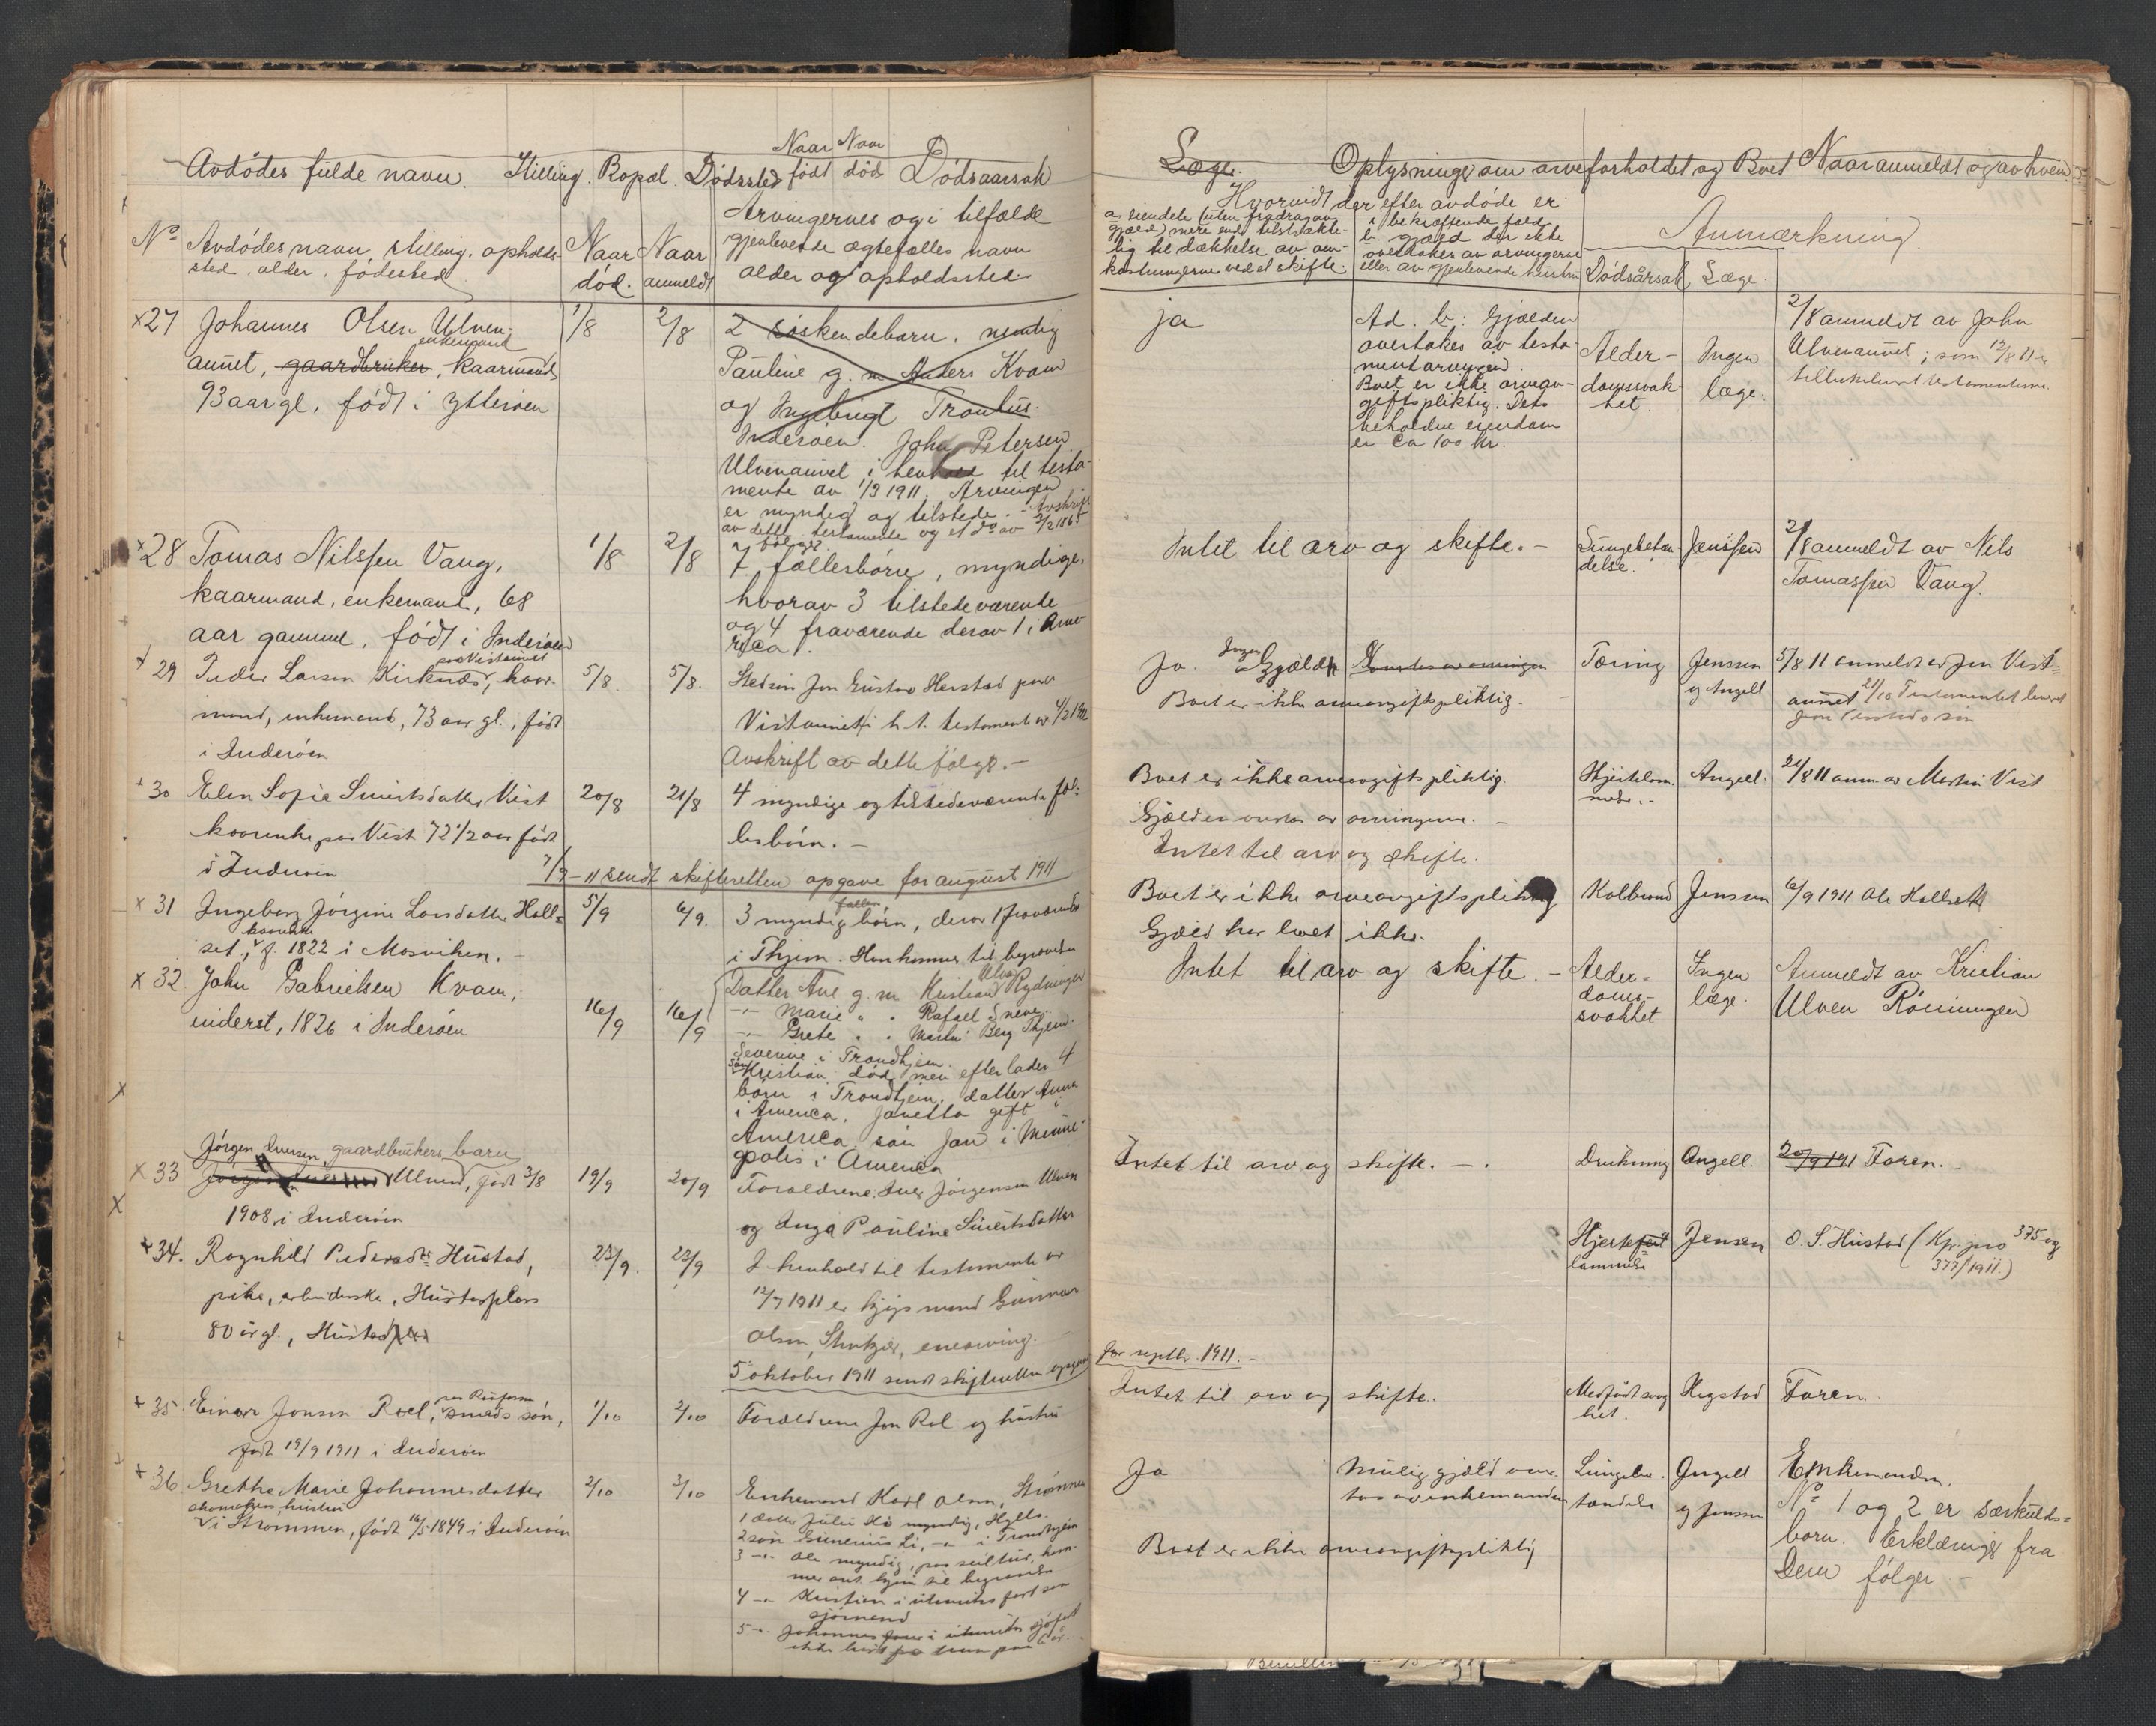 Naar Naar
Avdödes fulde navn. Stilling. Bopæl. Dödssted født død Dödsaarsak
No Avdödes navn, stilling, opholds-
sted, alder, fødested
Naar
död.
Naar
anmeldt
Arvingernes og i tilfælde
gjenlevende ægtefælles navn
alder og opholdssted
x27 Johannes Olsen Ulven-
enkemand
aunet, gaardbruker, kaarmand
93 aar gl, født i Ytterøen
1/8
2/8
2 søskendebarn, nemlig
Pauline g. m. Anders Kvam
og Ingebrigt Trontus.
Inderøen. John Petersen
Ulvenaunet i henhold til testa-
mente av 1/3 1911. Arvingen
er myndig og tilstede. - Avskrift
av dette testamente og et do av 2/2 1865
følger.
x28 Tomas Nilssen Vang,
kaarmand, enkemand, 68
aar gammel, født i Inderøen
1/8
2/8
7 fællesbörn, myndige,
hvorav 3 tilstedeværende
og 4 fraværende derav 1 i Ame-
rica.
x 29 Peder Larsen Kirknæs, kaar-
paa Vistaunet
mand, enkemand, 73 aar gl., født
i Inderøen
5/8.
5/8.
Stedsön Jon Gustav Herstad paa
Vistaunet i h. t. testament av
Avskrift av dette følger. -
x 30 Elen Sofie Sivertsdatter Vist
kaarenke paa Vist 72 1/2 aar født
i Inderøen
20/8
21/8
4 myndige og tilstedeværende fæl-
lesbörn. -
7/9 - 11 sendt skifteretten opgave for august 1911
x 31 Ingeborg Jörgine Larsdatter Hall-
kaarenke
set, f. 1822 i Mosviken. -
5/9
6/9.
fælles
3 myndige börn, derav 1 fraværende
i Thjem. Han kommer til begravelsen
x 32. John Gabrielsen Kvam,
inderst, 1826 i Inderøen
16/9
16/9
Datter Ane g. m Kristian Ulven Rydningen
-"- Marie " . Rafael Sneve.
-"- Grete " . Martin Berg Thjem.
Severine i Trondhjem.
Sön Kristian död, men efterlader 4
barn i Trondhjem, datter Anna
i America, Janetta gift i
America. sön Jan i Minne-
polis i America
Jörgen Iversen, gaardbrukers barn
x 33 Ulven, født 3/8
1908 i Inderøen
19/9
20/9
Forældrene: Iver Jörgensen Ulven
og Inga Pauline Sivertsdatter
x 34. Ragnhild Pedersdtr Hustad,
pike, arbeiderske, Hustadplass
80 år gl., Hustad
23/9.
23/9
I henhold til testamente av
12/7 1911 er gifts mand Gunnar
Olsen, enearving.
5 oktober 1911 sendt skifteretten opgave
x 35 Einar Jonsen Roel, smeds sön,
født 19/9 1911 i Inderøen
1/10
2/10
Forældrene Jon Rol og hustru
x 36. Grethe Marie Johannesdatter
skomakers hustru
i Strømmen, født 16/5 1849 i Inderøen
2/10
3/10
Enkemand Karl Olsen, Strømmen
1 datter Julie myndig, Hylla.
2 sön Li, -"- i Trondhjem
3 -"- Ole myndig, kom-
mer ant. hjem til begravelsen
4 -"- Kristian i utenriks fart som
sjömand
5 -"- Johannes i utenriks sjöfart
ikke hørt fra ham paa 6 år.
Læge. Oplysninger om arveforholdet og Boet Naar anmeldt og av hvem
Hvorvidt der efter avdöde er
a, eiendele (uten fradrag av
gjæld) mere end tilstrække-
lig til dækkelse av om-
kostningerne ved et skifte.
i bekræftende fald
b, gjæld der ikke
overtakes av arvingerne
eller av gjenlevende hustru
Anmærkning.
Dödsårsak Læge.
ja
Ad. b: Gjælden
overtakes av testa-
mentarvingen.
Boet er ikke arveav-
giftspliktig. Dets
beholdne eiendom
er ca 100 kr.
Alder-
domssvak-
het.
Ingen
læge.
2/8 anmeldt av John
Ulvenaunet, som 12/8 11
Intet til arv og skifte. -
Lungebetæn-
delse.
Jenssen
2/8 anmeldt av Nils
Tomassen Vang.
Ja. Ingen Gjæld
Boet er ikke arveavgiftspliktig. -
Tæring
Jenssen
og Angell
5/8 11 anmeldt av Jon Vist-
aunet 21/10 Testamentet leveret
Boet er ikke arveavgiftspliktig.
Gjælden overtas av arvingerne. -
Intet til arv og skifte.
Hjertelam-
melse. -
Angell.
21/8 11 anm. av Martin Vist
Boet er ikke arveavgiftspliktig
Gjæld har boet ikke.
Koldbrand
Jenssen
6/9 1911 Ole Hallset
Intet til arv og skifte. -
Alder-
doms-
svakhet
Ingen
læge.
Anmeldt av Kristian
Ulven Rönningen
Intet til arv og skifte. -.
Drukning
Angell.
20/9 1911 Faren. -
Hjerte
lammelse
Jensen
O. S. Hustad (Kpr. jno 375 og
377/1911.)
for septbr. 1911. -
Intet til arv og skifte.
Medfødt svag-
het.
Hegstad
Faren.
Ja
Mulig gjæld over-
tas av enkemanden
Boet er ikke arveavgiftspliktig
Lungebe-
tændelse
Angell
og Jenssen
Enkemanden.
No 1 og 2 er særkulds-
barn. Erklæring fra
Dem følger -